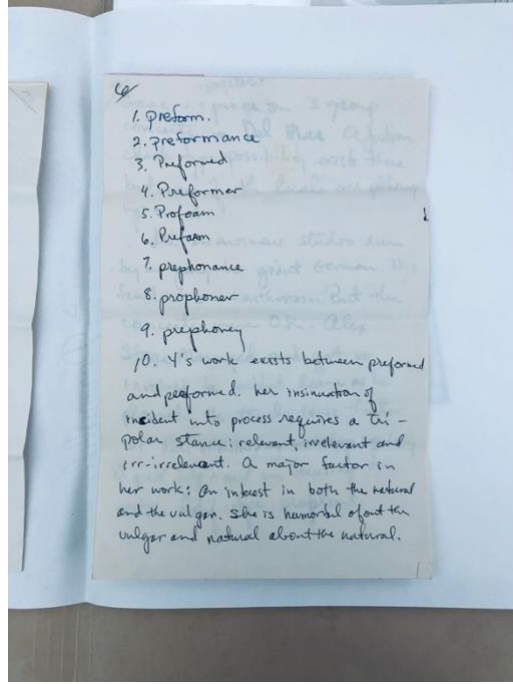 6/
1. preform.
2. preformance
3. Preformed
4. Preformer
5. Profoam
6. Prefarm
7. prephonance
8. prophoner
9. prephoney
10. Y's work exists between preformed
and performed. her insinuation of
incident into process requires a tri-
polar stance; relevant, irrelevant and
irr-irrelevant. A major factor in
her work: An interest in both the natural
and the vulgar. She is about the
vulgar and natural about the natural.